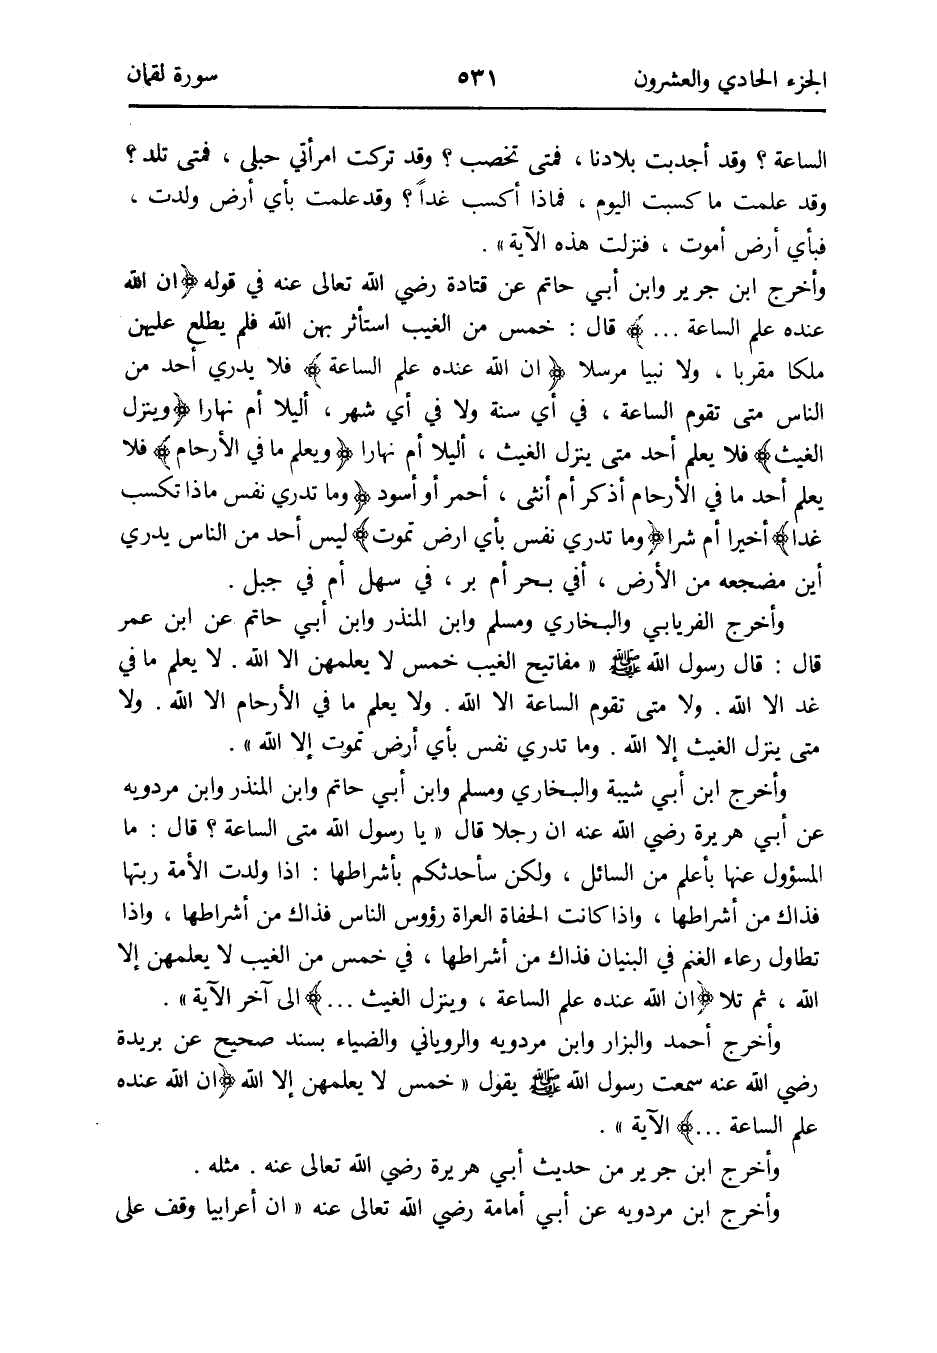 الجزء الحادي والعشرون ٥٣١ سورة لقمان
الساعة ؟ وقد أجدبت بلادنا ، فمتى تخصب ؟ وقد تركت امرأتي حبلى ، فمتى تلد ؟
وقد علمت ما كسبت اليوم ، فماذا أكسب غداً ؟ وقد علمت بأي أرض ولدت ،
فبأي أرض أموت ، فنزلت هذه الآية » .
وأخرج ابن جرير وابن أبي حاتم عن قتادة رضي الله تعالى عنه في قوله ﴿ ان الله
عنده علم الساعة ... ﴾ قال : خمس من الغيب استأثر بهن الله فلم يطلع عليهن
ملكا مقربا ، ولا نبيا مرسلا ﴿ ان الله عنده علم الساعة ﴾ فلا يدري أحد من
الناس متى تقوم الساعة ، في أي سنة ولا في أي شهر ، أليلا أم نهارا ﴿ وينزل
الغيث ﴾ فلا يعلم أحد متى ينزل الغيث ، أليلا أم نهارا ﴿ ويعلم ما في الأرحام ﴾ فلا
يعلم أحد ما في الأرحام أذكر أم أنثى ، أحمر أو أسود ﴿ وما تدري نفس ماذا تكسب
غدا ﴾ أخيرا أم شرا ﴿ وما تدري نفس بأي ارض تموت ﴾ ليس أحد من الناس يدري
أين مضجعه من الأرض ، أفي بحر أم بر ، في سهل أم في جبل .
وأخرج الفريابي والبخاري ومسلم وابن المنذر وابن أبي حاتم عن ابن عمر
قال : قال رسول الله ﷺ « مفاتيح الغيب خمس لا يعلمهن الا الله . لا يعلم ما في
غد الا الله . ولا متى تقوم الساعة الا الله . ولا يعلم ما في الأرحام الا الله . ولا
متى ينزل الغيث إلا الله . وما تدري نفس بأي أرض تموت إلا الله » .
وأخرج ابن أبي شيبة والبخاري ومسلم وابن أبي حاتم وابن المنذر وابن مردويه
عن أبي هريرة رضي الله عنه ان رجلا قال « يا رسول الله متى الساعة ؟ قال : ما
المسؤول عنها بأعلم من السائل ، ولكن سأحدثكم بأشراطها : اذا ولدت الأمة ربتها
فذاك من أشراطها ، واذا كانت الحفاة العراة رؤوس الناس فذاك من أشراطها ، واذا
تطاول رعاء الغنم في البنيان فذاك من أشراطها ، في خمس من الغيب لا يعلمهن إلا
الله ، ثم تلا ﴿ ان الله عنده علم الساعة ، وينزل الغيث ... ﴾ الى آخر الآية » .
وأخرج أحمد والبزار وابن مردويه والروياني والضياء بسند صحيح عن بريدة
رضي الله عنه سمعت رسول الله ﷺ يقول « خمس لا يعلمهن إلا الله ﴿ ان الله عنده
علم الساعة ... ﴾ الآية » .
وأخرج ابن جرير من حديث أبي هريرة رضي الله تعالى عنه . مثله .
وأخرج ابن مردويه عن أبي أمامة رضي الله تعالى عنه « ان أعرابيا وقف على